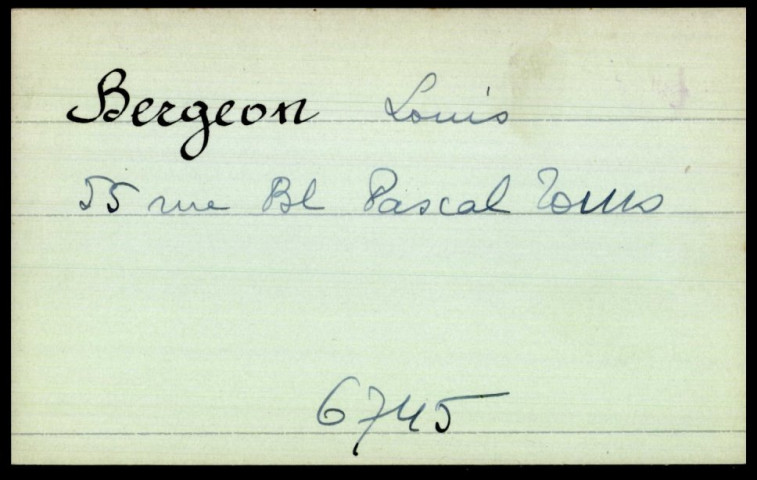 Bergeon Louis
55 rue Bl Pascal Tours
6745